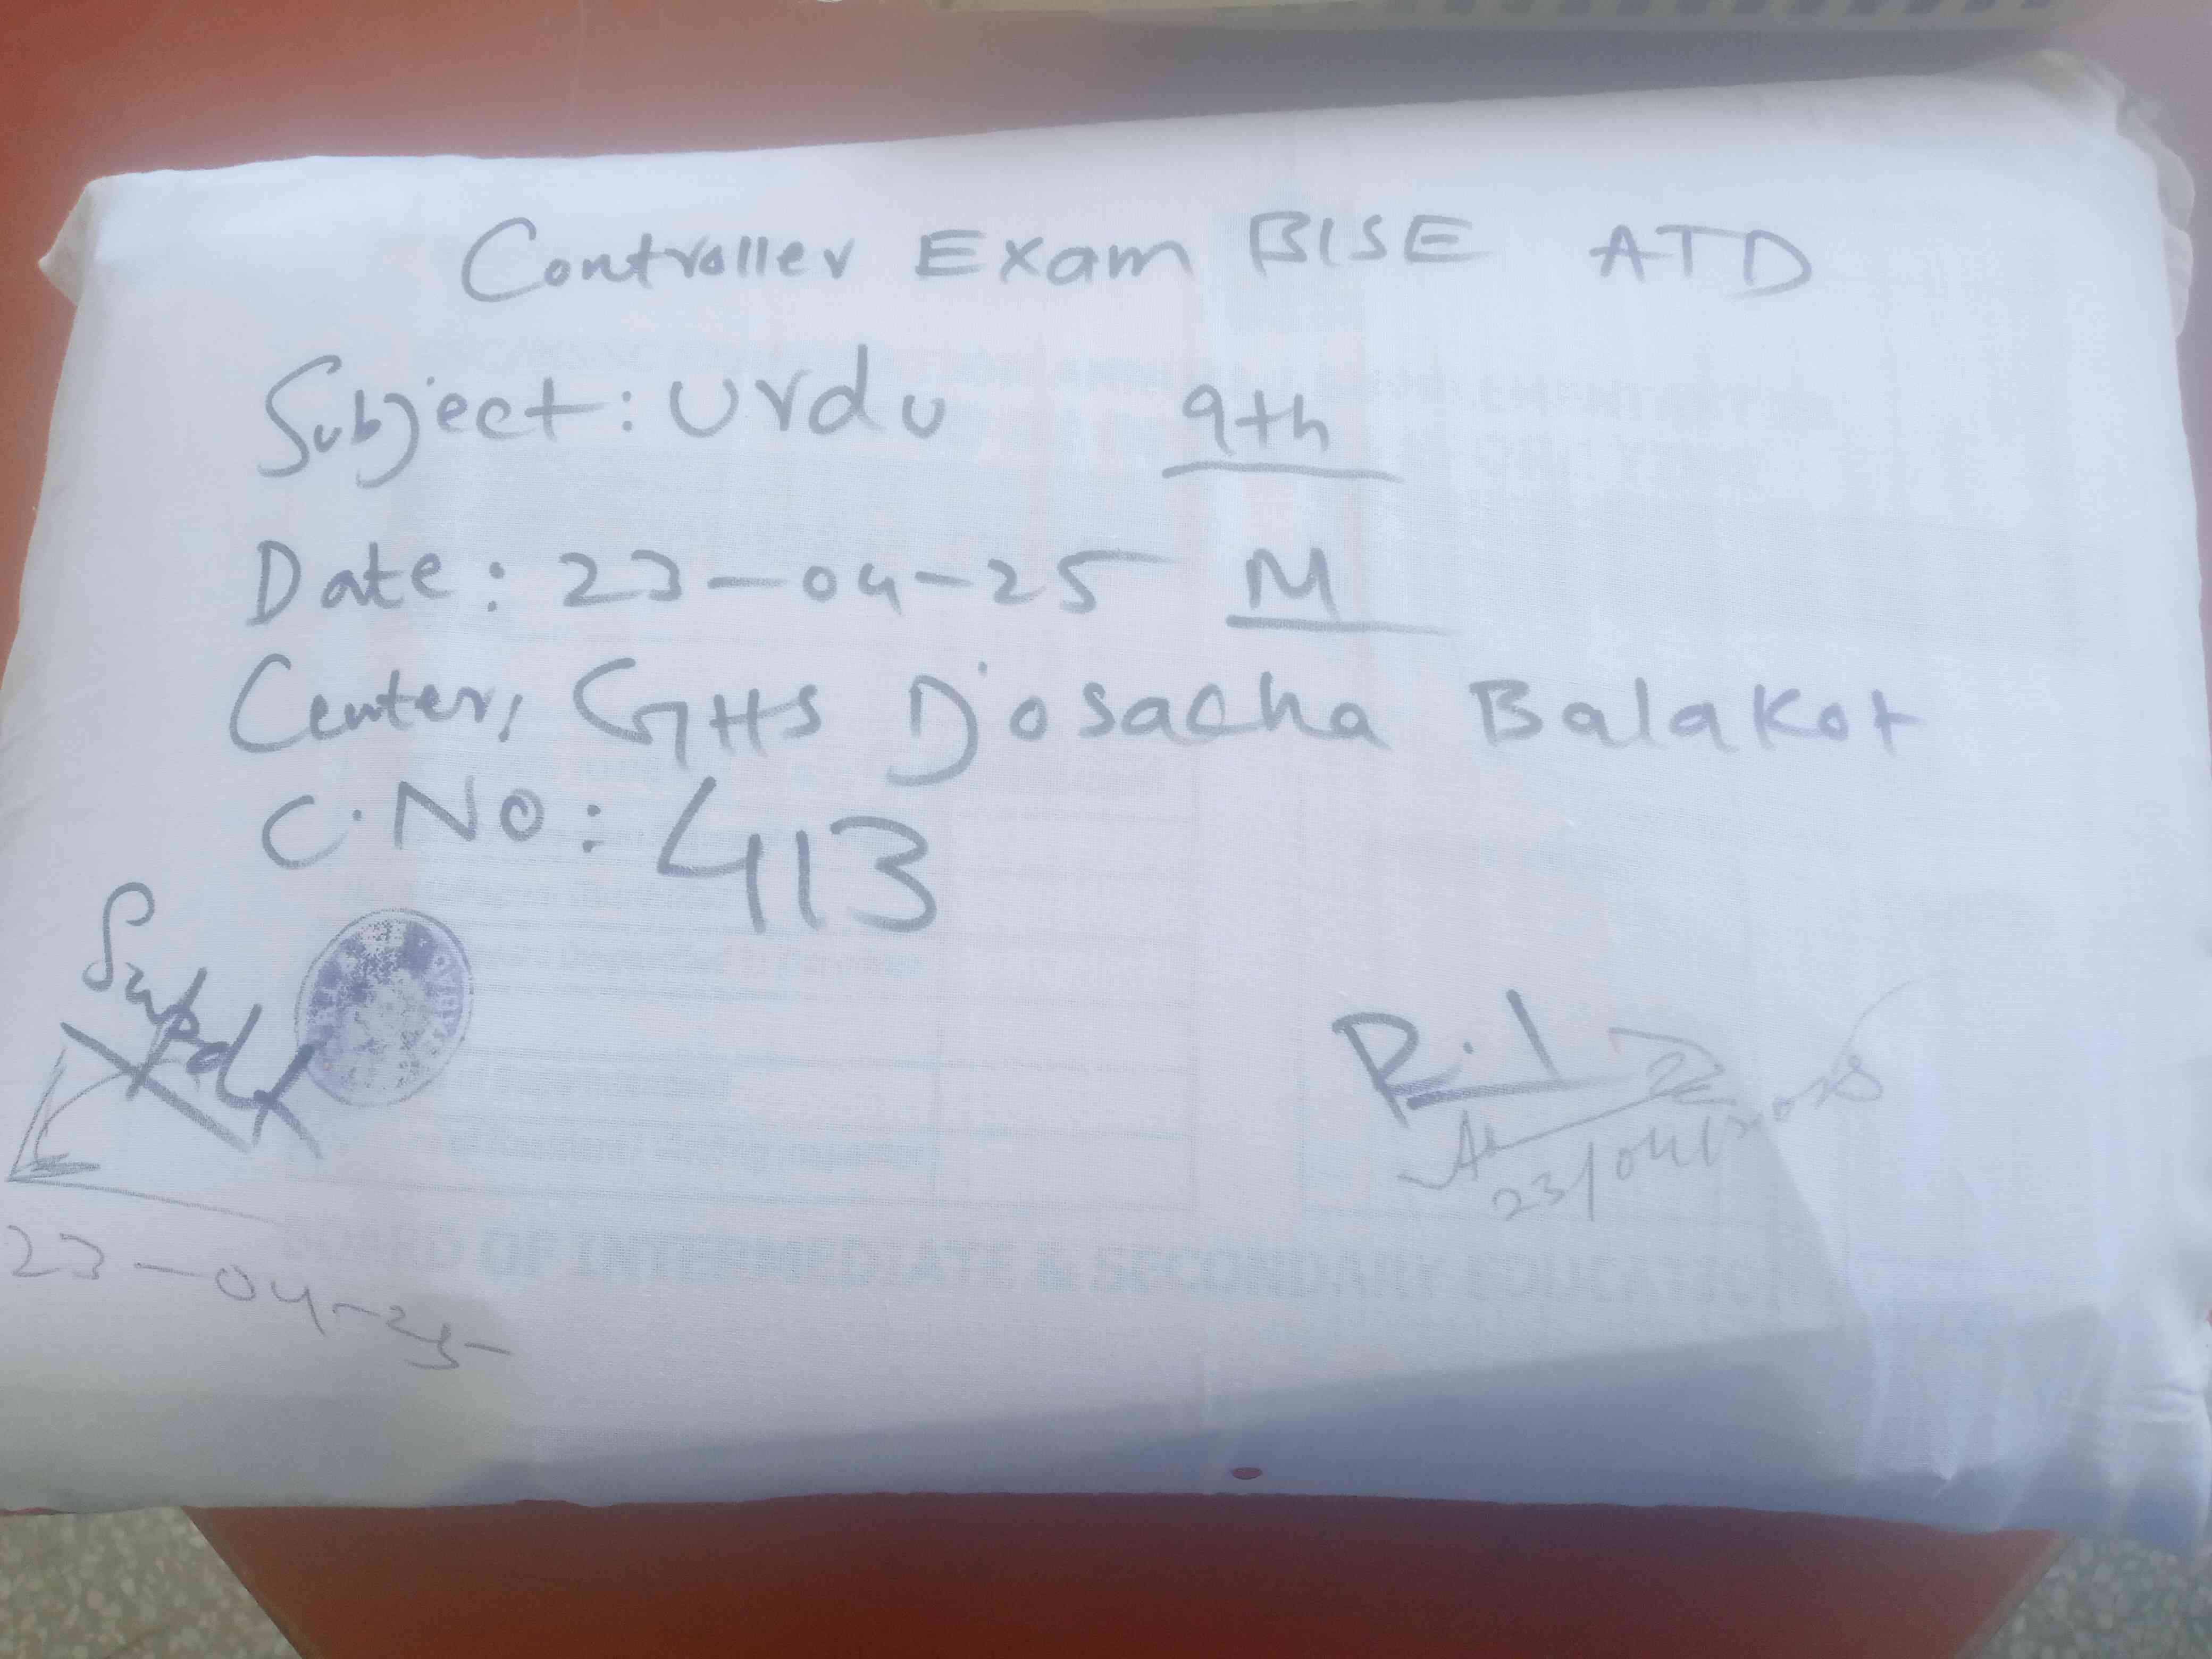 Controller Exam BISE ATD
Subject: Urdu 9th
Date: 23-04-25 M
Center, GHS Dosacha Balakot
C.No: 413
Supdt
R.I
23/04/2025
23-04-25
OF INTERMEDIATE & SECONDARY EDUCATION